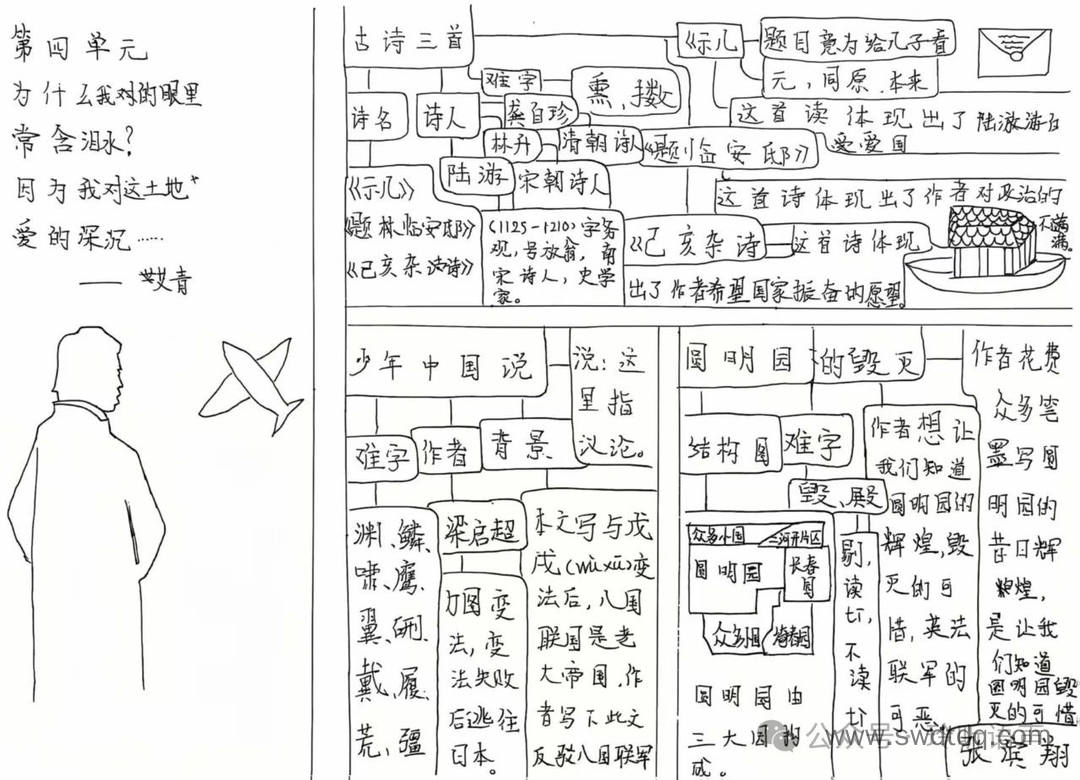 第四单元
为什么我对的眼里
常含泪水?
因为我对这土地
爱的深沉……
——艾青
古诗三首
诗名
诗人
难字
熏、擞
龚自珍
林升
清朝诗人
陆游
宋朝诗人
《示儿》
《题林临安邸》
《己亥杂诗》
(1125-1210)字务
观,号放翁,南
宋诗人,史学
家。
《示儿
题目意为给儿子看
元,同原.本来
这首读体现出了陆游游白
爱爱国
《题临安邸》
这首诗体现出了作者对政治的
不满
满。
《己亥杂诗
这首诗体现
出了作者希望国家振奋的愿望。
少年中国说
说:这
里指
议论。
难字
作者
背景
渊、鳞、
啸、鹰、
翼、硎、
戴、履、
荒、疆
梁启超
力图变
法,变
法失败
后逃往
日本。
本文写与戊
戌(wù xū)变
法后,八国
联国是老
大帝国,作
者写下此文
反驳八国联军
圆明园的毁灭
结构图
难字
毁、殿
众多小园
圆明园
长春
园
众多小园
圆明园由
三大园构
成。
剔,
读tī,
不读
tì,
作者想让
我们知道
圆明园的
辉煌,毁
灭的可
惜,英法
联军的
可恶
作者花费
众多笔
墨写圆
明园的
昔日辉
煌,
是让我
们知道
圆明园毁
灭的可惜
张滨翔
公众号
www.swdtdq.com